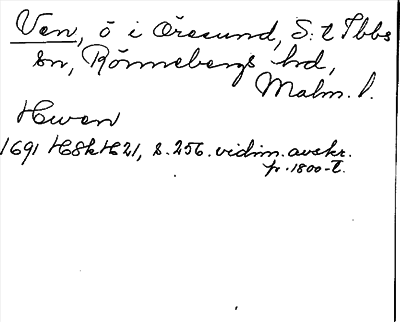 Ven, ö i Öresund, S:t Ibbs
sn, Rönnebergs hrd,
Malm. l.
Hwen
1691 HSkH21, s. 256. vidim. avskr.
fr. 1800-t.